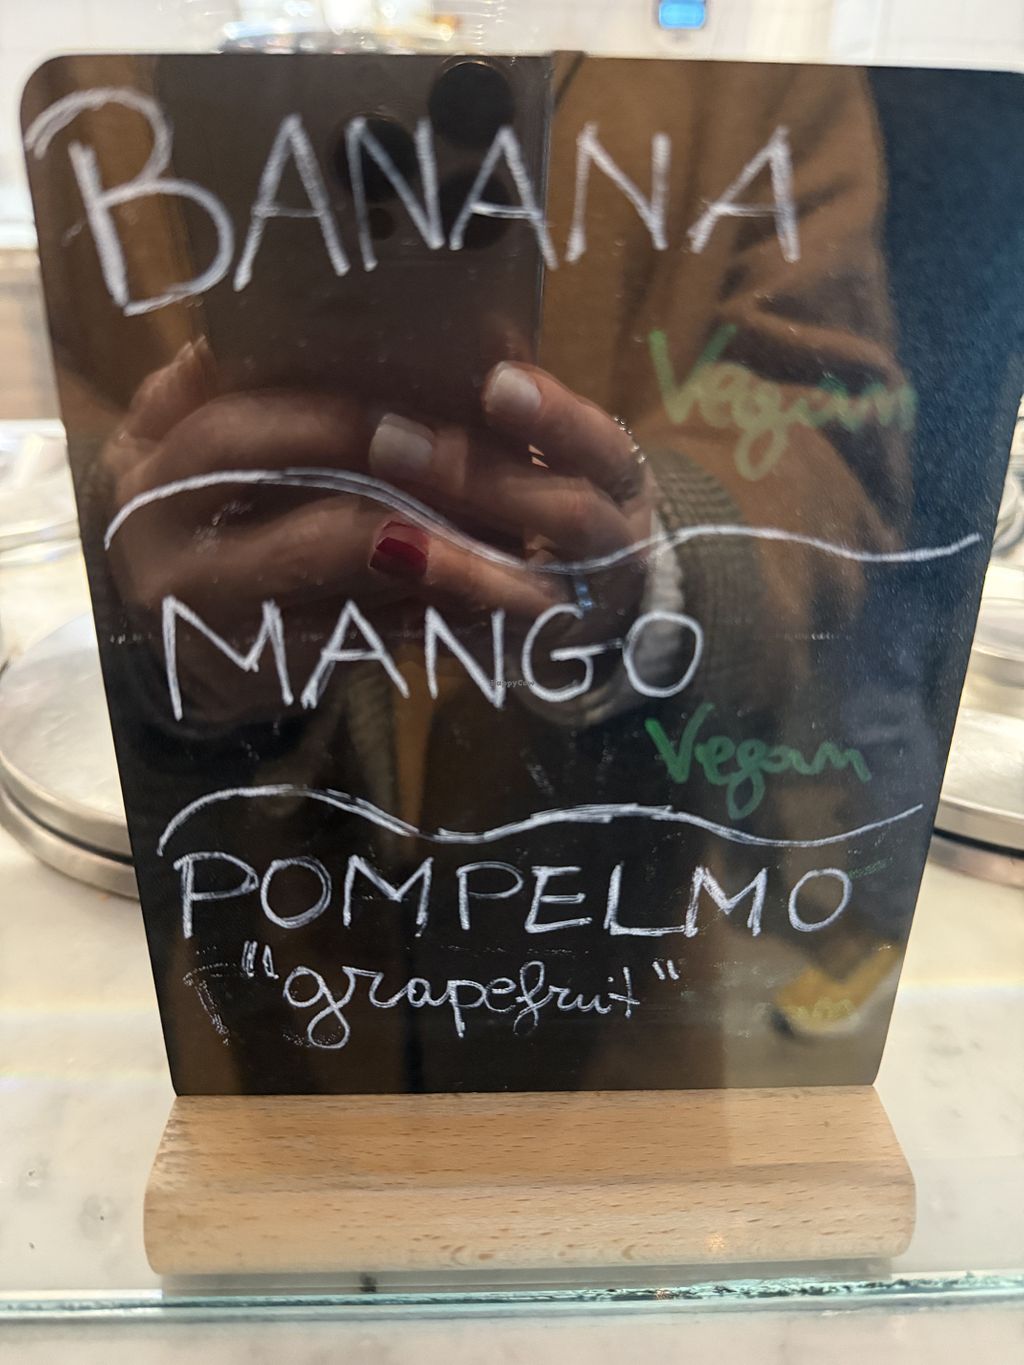 BANANA
Vegan
MANGO
HappyCow
Vegan
POMPELMO
"grapefruit"